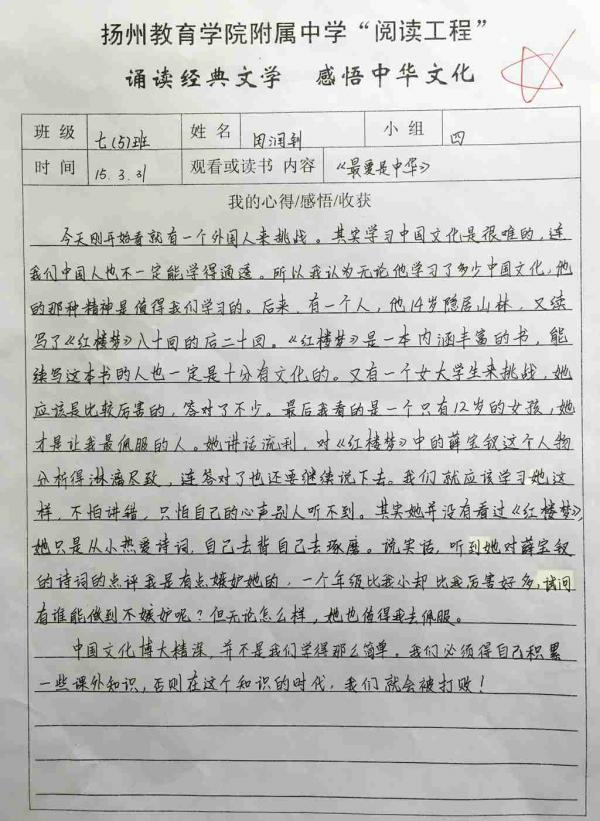 扬州教育学院附属中学“阅读工程”
诵读经典文学 感悟中华文化
班 级 七(5)班 姓 名 田润钊 小 组 四
时 间 15.3.31 观看或读书 内容 《最爱是中华》
我的心得/感悟/收获
今天刚开始看就有一个外国人来挑战。其实学习中国文化是很难的,连
我们中国人也不一定能学得通透。所以我认为无论他学习了多少中国文化,他
的那种精神是值得我们学习的。后来,有一个人,他14岁隐居山林,又续
写了《红楼梦》八十回的后二十回。《红楼梦》是一本内涵丰富的书,能
续写这本书的人也一定是十分有文化的。又有一个女大学生来挑战,她
应该是比较厉害的,答对了不少。最后我看的是一个只有12岁的女孩,她
才是让我最佩服的人。她讲话流利,对《红楼梦》中的薛宝钗这个人物
分析得淋漓尽致,连答对了也还要继续说下去。我们就应该学习她这
样,不怕讲错,只怕自己的心声别人听不到。其实她并没有看过《红楼梦》,
她只是从小热爱诗词,自己去背自己去琢磨。说实话,听到她对薛宝钗
的诗词的点评我是有点嫉妒她的,一个年级比我小却比我厉害好多,试问
有谁能做到不嫉妒呢?但无论怎么样,她也值得我去佩服。
中国文化博大精深,并不是我们学得那么简单。我们必须得自己积累
一些课外知识,否则在这个知识的时代,我们就会被打败!